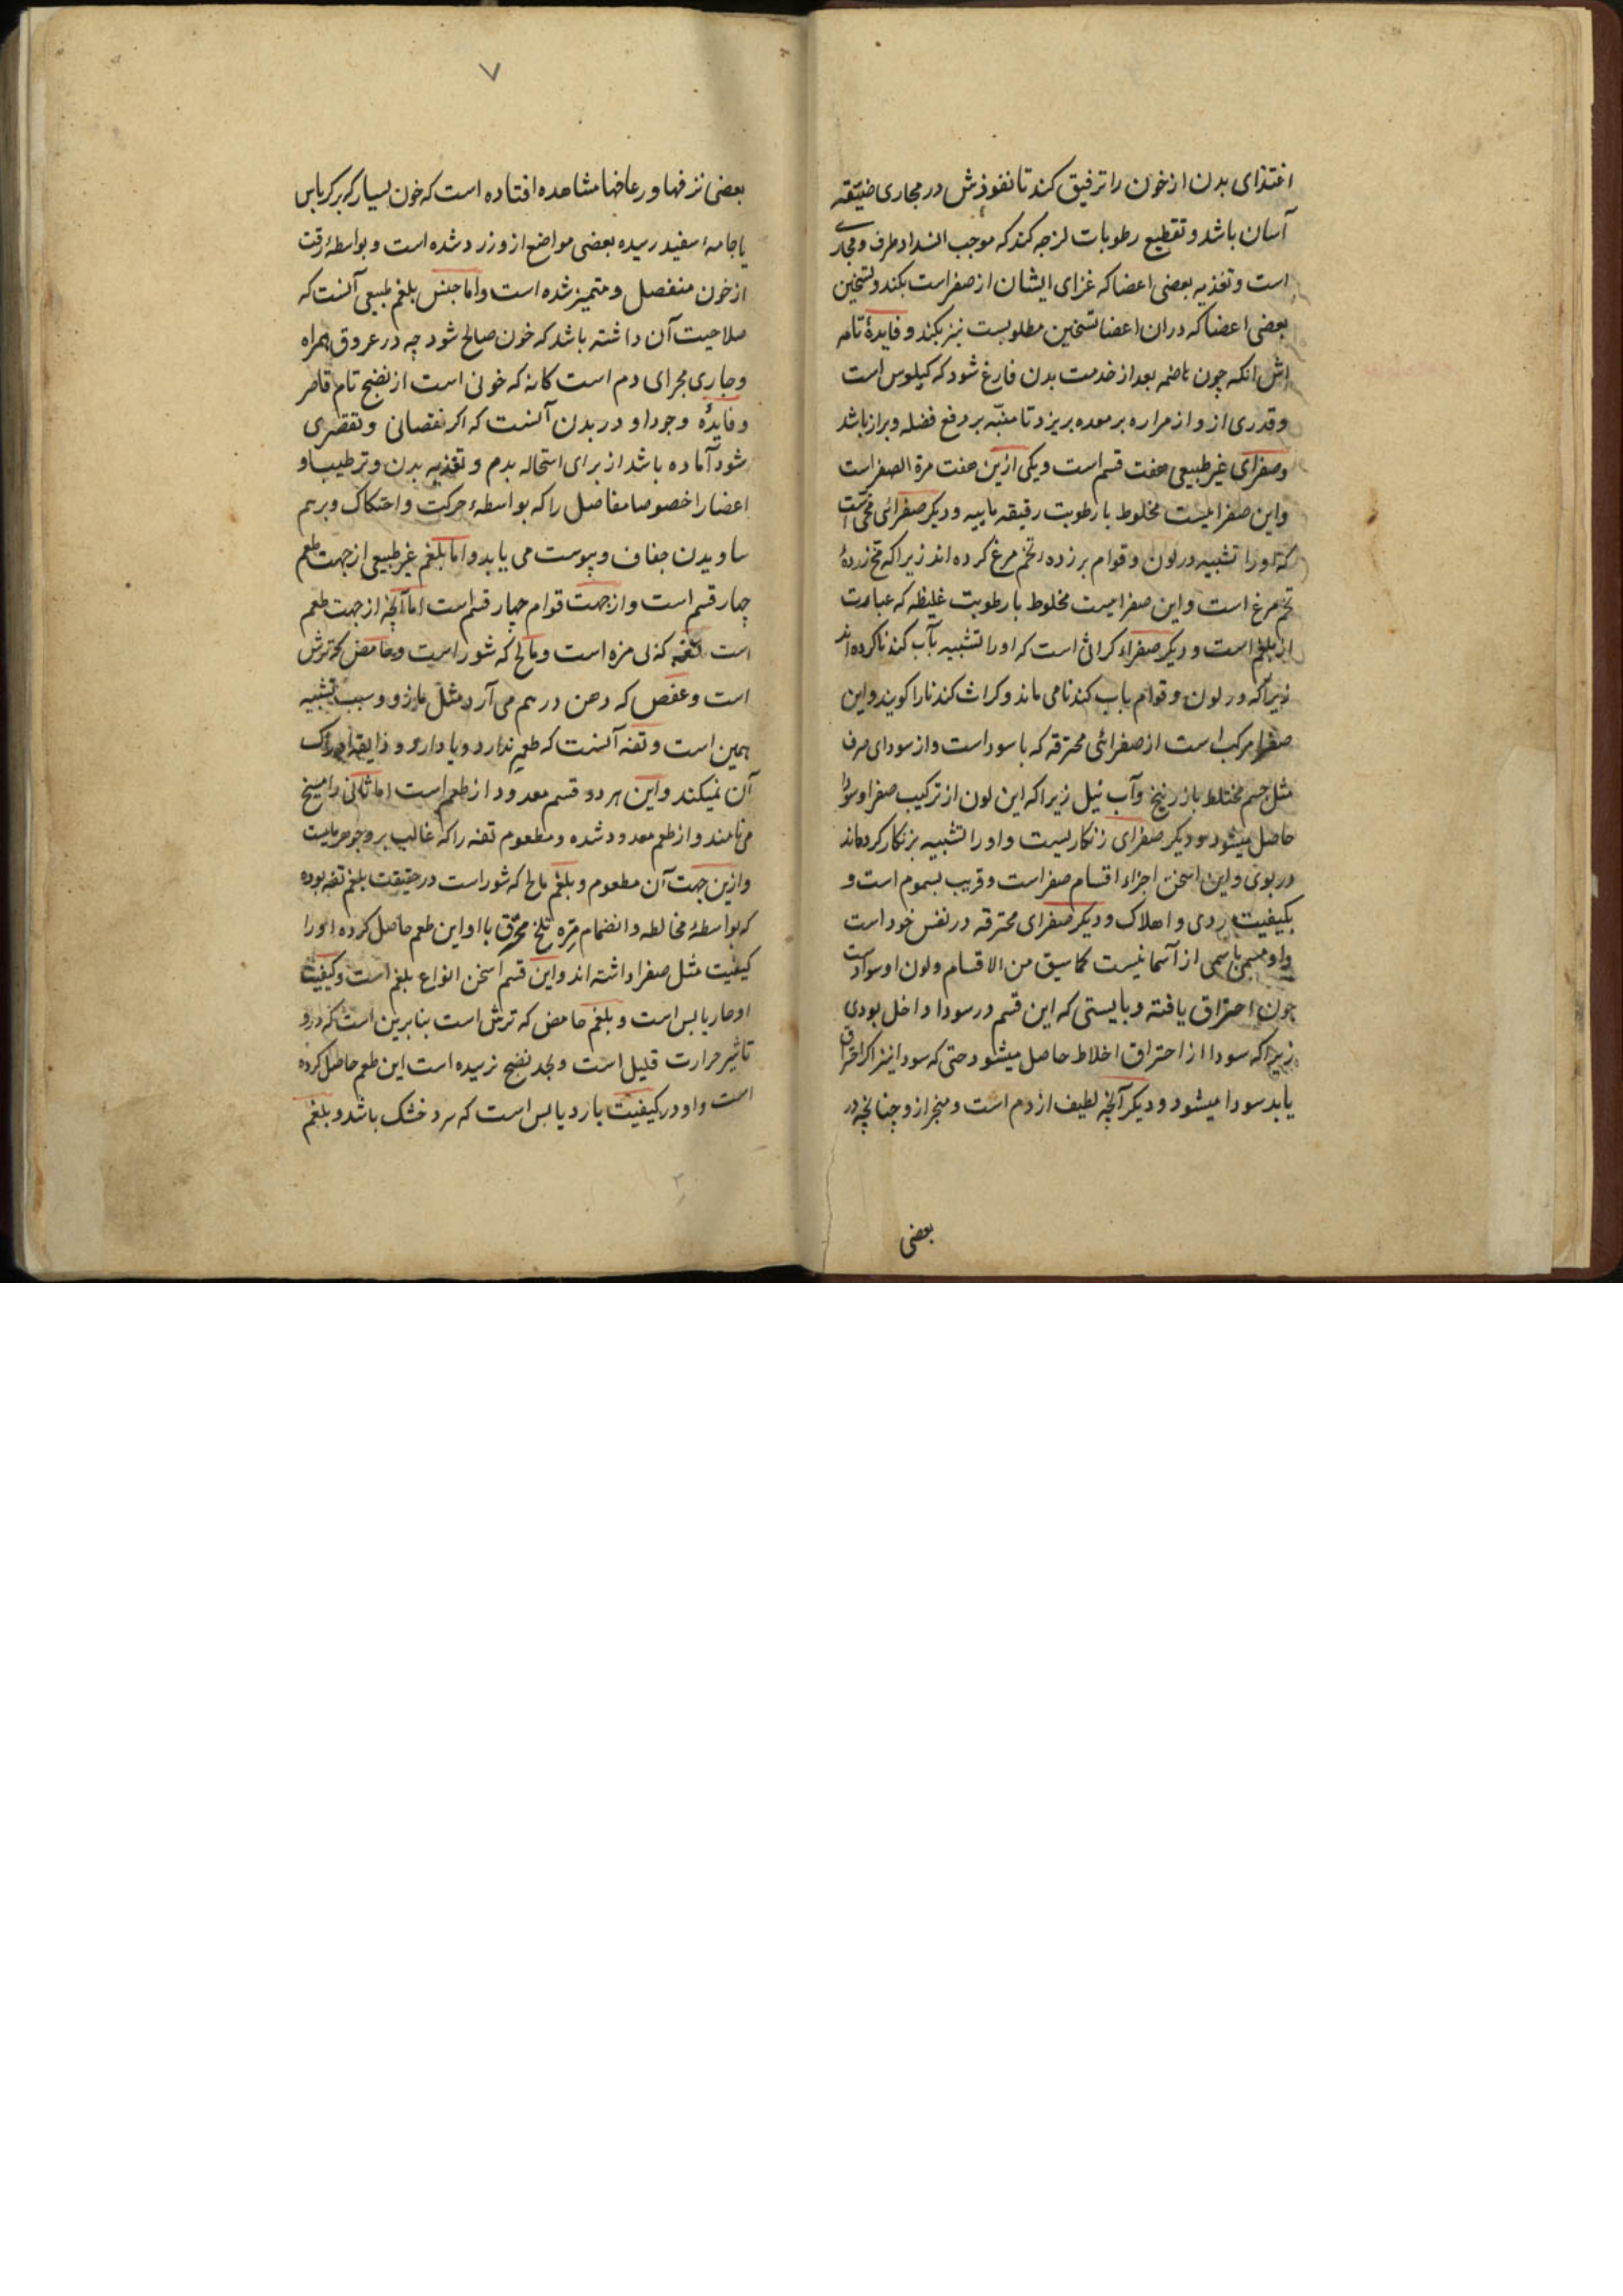 اغتذای بدن از خون را ترفیق کند تا نفوذش در مجاری ضیقه
آسان باشد و تقطیع رطوبات لزجه کند که موجب انسداد طرف و مجاری
است و تغذیه بعضی اعضا که غزای ایشان از صفر است بکند و تسخین
بعضی اعضا که دران اعضا تسخین مطلوبست نیز بکند و فایدۀ تامه
اش انکه چون هاضمه بعد از خدمت بدن فارغ شود که کیلوس است
و قدری ازو از مراره بر معده بریزد تا منبّه بر دفع فضله و براز باشد
و صفرای غیر طبیعی هفت قسم است و یکی ازین هفت مرة الصفر است
و این صفرائیست مخلوط با رطوبت رقیقه مائیه و دیکر صفرائی محّی است
که او را تشبیه در لون و قوام بر زده تخم مرغ کرده اند زیرا که مح زردۀ
تخم مرغ است و این صفرائیست مخلوط با رطوبت غلیظه که عبارت
از بلغم است و دیکر صفراء کراثی است که او را تشبیه بآب کندنا کرده اند
زیرا که در لون و قوام باب کندنا می ماند و کراث کندنا را کویند و این
صفرا مرکب است از صفرائی محترقه که با سودا است و از سودای صرف
مثل جسم مختلط با زرنیخ و آب نیل زیرا که این لون از ترکیب صفرا و سودا
حاصل میشود و دیکر صفرای زنکاریست و او را تشبیه بزنکار کرده اند
در بوی و این اسخن اجزاء اقسام صفر است و قریب بسموم است و
بکیفیت ردی و اهلاک و دیکر صفرای محترقه در نفس خود است
و او مسمی باسمی از آسما نیست کما سبق من الاقسام و لون او سواد است
چون احتراق یافته و بایستی که این قسم در سودا داخل بودی
زیرا که سودا از احتراق اخلاط حاصل میشود حتی که سودا نیز اکر احتراق
یابد سودا میشود و دیکر آنچه لطیف از دم است و منجر ازو چنانچه در
بعضی
۷
بعضی نزفها و رعافها مشاهده افتاده است که خون بسیار که بر کرباس
یا جامۀ سفید رسیده بعضی مواضع ازو زرد شده است و بواسطۀ رقت
از خون منفصل و متمیز شده است و اما جنس بلغم طبیعی آنست که
صلاحیت آن داشته باشد که خون صالح شود چه در عروق همراه
و جاری مجرای دم است کانه که خونی است از نضج تام قاصر
و فایدۀ وجود او در بدن آنست که اکر نقصانی و تقصیری
شود آماده باشد از برای استحاله بدم و تغذیه بدن و ترطیب او
اعضا را خصوصا مفاصل را که بواسطۀ حرکت و احتکاک و برهم
ساویدن جفاف و یبوست می یابد و اما بلغم غیر طبیعی از جهت طعم
چهار قسم است و از جهت قوام چهار قسم است اما آنچه از جهت طعم
است تفه که بی مزه است و مالح که شور است و حامض که ترش
است و عفص که دهن در هم می آرد مثل مازو و سبب تشبیه
همین است و تفه آنست که طعم ندارد و یا دارد و ذایقه ادراک
آن نمیکند و این هر دو قسم معدود از طعم است اما ثانی را مسیخ
می نامند و از طعم معدود شده و مطعوم تفه را که غالب برو جوهر مائیست
و ازین جهت آن مطعوم و بلغم مالح که شور است در حقیقت بلغم تفه بوده
که بواسطۀ مخالطه و انضمام مرّه تلخ محرّق با او این طعم حاصل کرده او را
کیفیت مثل صفرا داشته اند و این قسم اسخن انواع بلغم است و کیفیت
او حار یابس است و بلغم حامض که ترش است بنا برین است که درو
تاثیر حرارت قلیل است و بحد نضج نرسیده است این طعم حاصل کرده
است و او در کیفیت بارد یابس است که سرد خشک باشد و بلغم